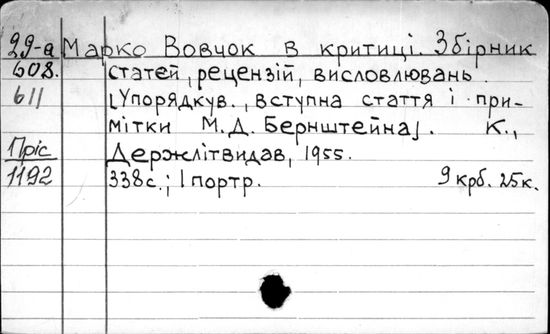 29-а Марко Вовчок в критиці. Збірник
608. статей, рецензій, висловлювань.
611 [Упорядкув., вступна стаття і при-
мітки М.Д. Бернштейна]. К.,
Пріс Держлітвидав, 1955.
1192 338с.; 1 портр. 9 крб. 25к.